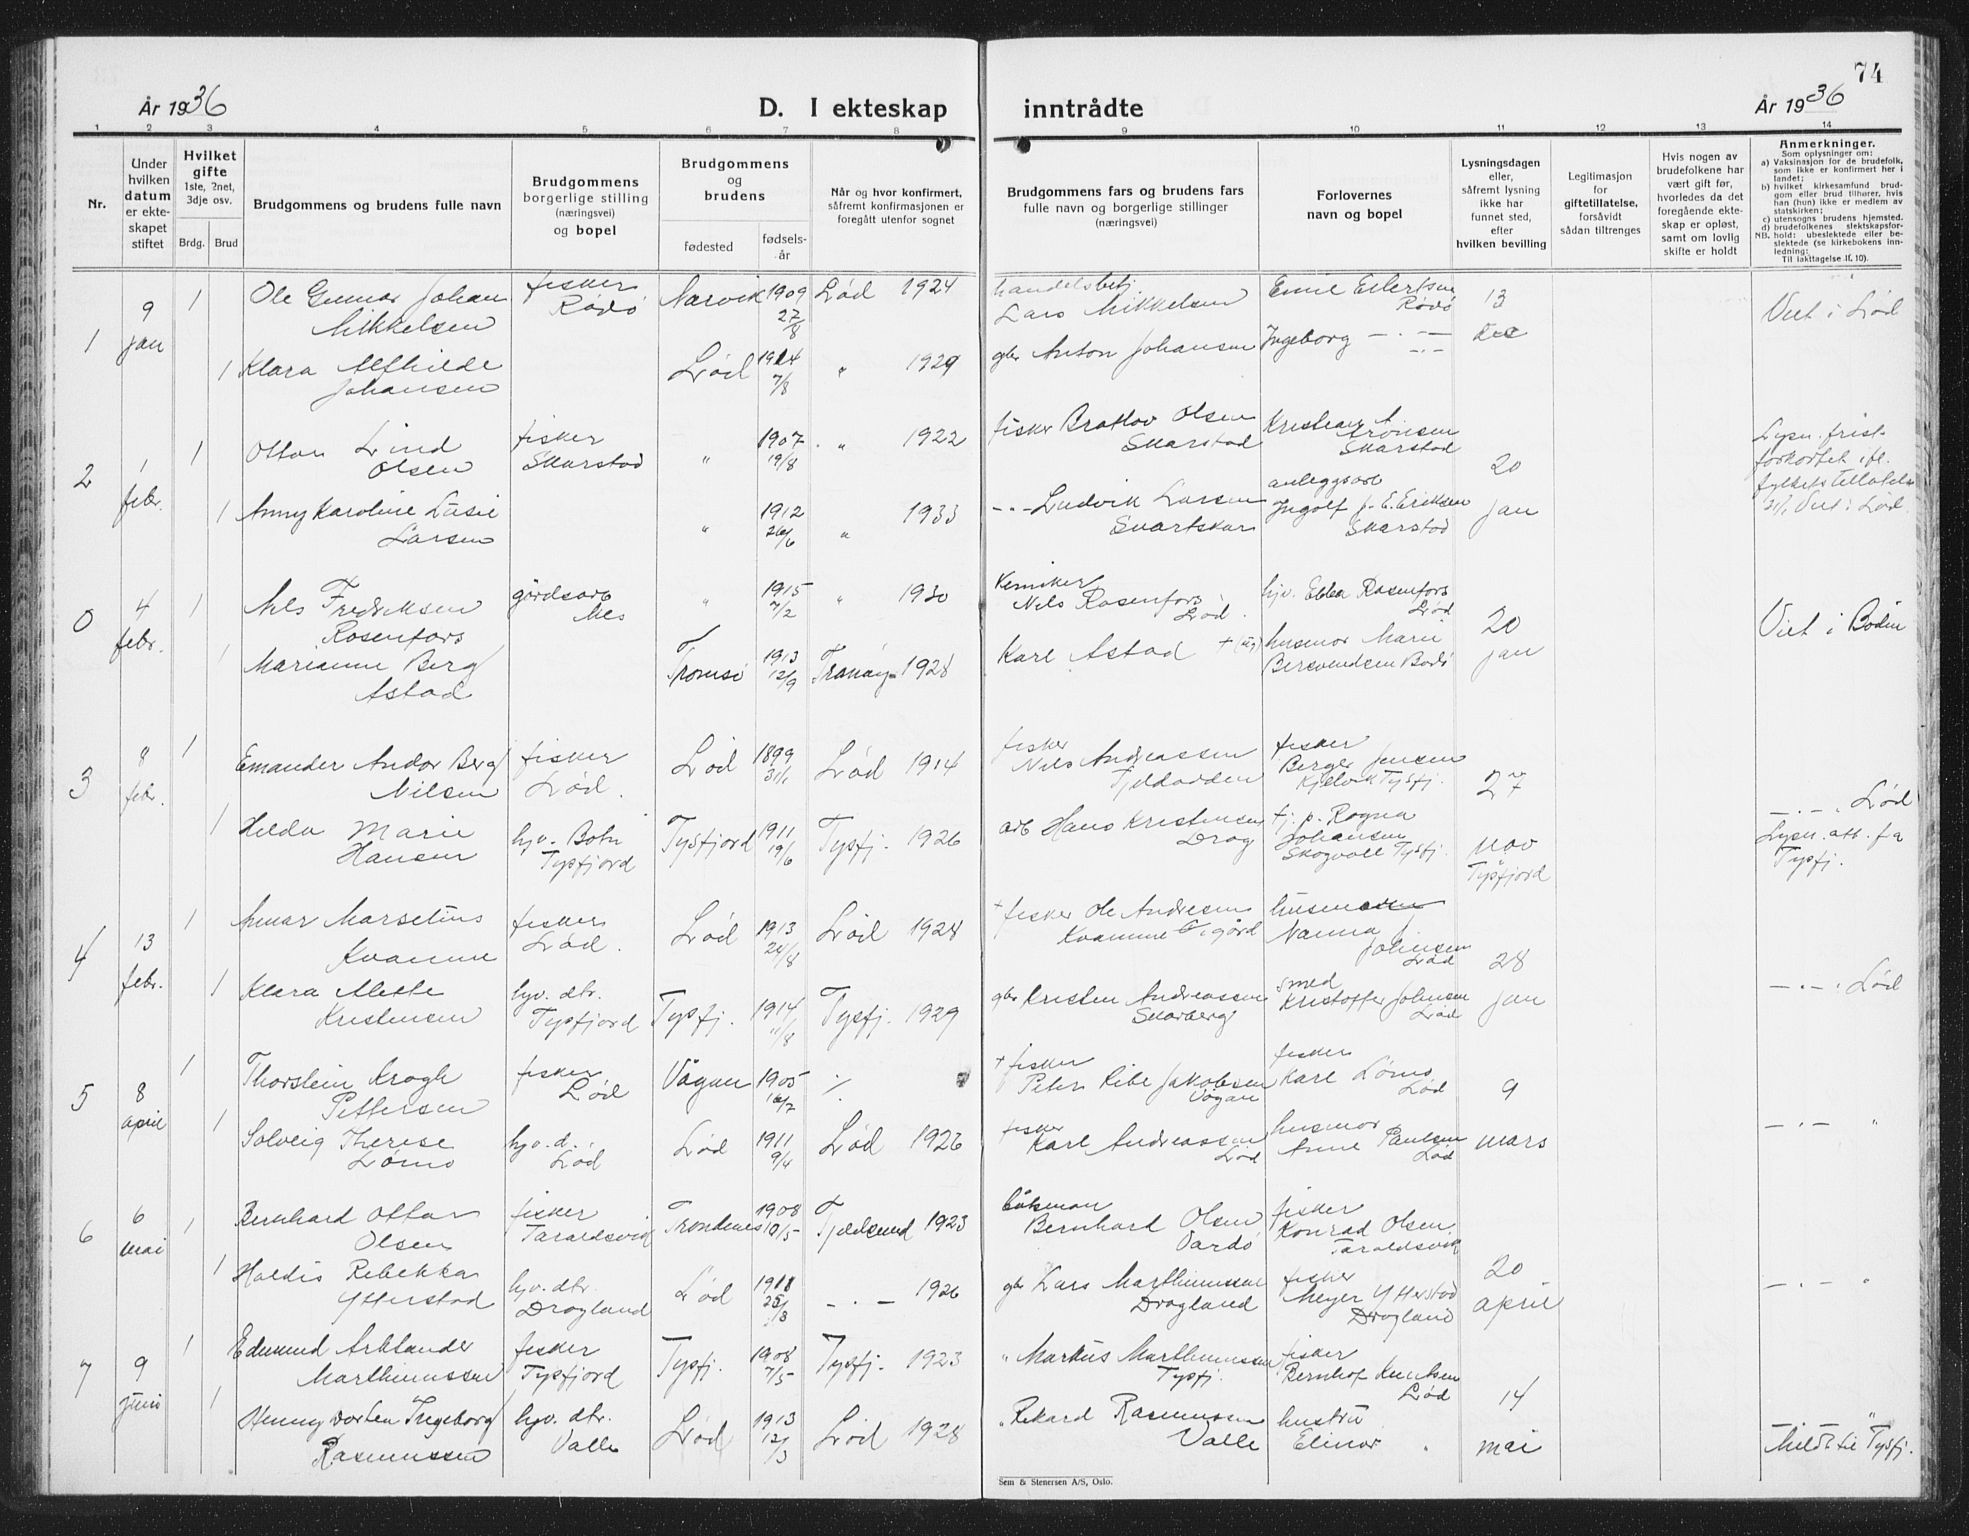 74
År 1936
D. I ekteskap
inntrådte
År 1936
1 2 3 4 5 6 7 8 9 10 11 12 13 14
Nr.
Under
hvilken
datum
er ekte-
skapet
stiftet
Hvilket
gifte
1ste, 2net,
3dje osv.
Brdg. Brud
Brudgommens og brudens fulle navn
Brudgommens
borgerlige stilling
(næringsvei)
og bopel
Brudgommens
og
brudens
fødested
fødsels-
år
Når og hvor konfirmert,
såfremt konfirmasjonen er
foregått utenfor sognet
Brudgommens fars og brudens fars
fulle navn og borgerlige stillinger
(næringsvei)
Forlovernes
navn og bopel
Lysningsdagen
eller,
såfremt lysning
ikke har
funnet sted,
efter
hvilken bevilling
Legitimasjon
for
giftetillatelse,
forsåvidt
sådan tiltrenges
Hvis nogen av
brudefolkene har
vært gift før,
hvorledes da det
foregående ekte-
skap er opløst,
samt om lovlig
skifte er holdt
Anmerkninger.
Som oplysninger om:
a) Vaksinasjon for de brudefolk,
som ikke er konfirmert her i
landet;
b) hvilket kirkesamfund brud-
gom eller brud tilhører, hvis
han (hun) ikke er medlem av
statskirken;
c) utensogns brudens hjemsted.
d) brudefolkenes slektskapsfor-
NB. hold: ubeslektede eller be-
slektede (se kirkebokens inn-
ledning:
Til iakttagelse lf. 10).
1 9 jan 1 Ole Gunnar Johan Mikkelsen fisker Rødø Narvik 1909 27/8 Lød 1924 handelsbetj. Lars Mikkelsen Emil Eilertsen Rødø 13 des Viet i Lød
1 Klara Alfhilde Johansen Lød 1914 7/8 " 1929 gbr Anton Johansen Ingeborg — . — — . —
2 1 febr. 1 Ottar Lind Olsen fisker Skarstad " 1907 19/8 " 1922 fisker Bratlov Olsen Skarstad Kristian A. Aronsen Skarstad 20 jan Lysn. frist forkortet ifl. fylkets tillatelse Viet i Lød
1 Anny Karoline Lusie Larsen " 1912 26/6 " 1933 — . — Ludvik Larsen Svartskar anleggsarb Ingolf J. E. Eriksen Skarstad
0 4 febr. 1 Nils Fredriksen Rosenfors gårdsarb Nes " 1915 7/2 " 1930 Kemiker Nils Rosenfors Lød hjv. Ebba Rosenfors Lød 20 jan Viet i Bodin
1 Marianne Berg Astad Tromsø 1913 12/9 Tranøy 1928 Karl Astad + husmor Marie Bersvendsen Bodø
3 8 febr. 1 Emander Andor Berg Nilsen fisker Lød. Lød 1899 31/1 Lød 1914 fisker Nils Andreassen Tjeldodden fisker Berger Jensen Kjelvik Tysfj. 27 nov Tysfjord — . — . Lød
1 Hilda Marie Hansen hjv. Botn Tysfjord Tysfjord 1911 19/6 Tysfj. 1926 arb Hans Kristensen Drag tj. p. Ragna Johansen Skogvoll Tysfj. Lysn. att. fra Tysfj.
4 13 febr. 1 Marselius Kvamme fisker Lød. Lød 1913 24/8 Lød 1928 + fisker Ole Andresen Kvamme husmor Nanna Johnsen Lød 28 jan — . — . Lød
1 Klara Alette Kristensen hjv. dtr. Tysfjord Tysfj. 1914 11/8 Tysfj. 1929 gbr Kristen Andreassen Skarberg smed Kristoffer Johnsen Lød
5 8 april 1 Thorstein Krogh Pettersen fisker Lød Vågan 1905 16/2 ./. + fisker Peter Ribe Jakobsen Vågan fisker Karl Lømo Lød 9 mars — . — "
1 Solveig Therese Lømo hjv. d. Lød Lød 1911 9/4 Lød 1926 fisker Karl Andreassen Lød husmor Anne Paulsen Lød
6 6 mai 1 Bernhard Ottar Olsen fisker Taraldsvik Trondenes 1908 10/5 Tjeldsund 1923 båtsman Bernhard Olsen Vardø fisker Konrad Olsen Taraldsvik 20 april — . — "
1 Haldis Rebekka Ytterstad hjv. dtr. Drogland Lød 1911 25/3 — . — 1926 gbr Lars Marthinussen Drogland fisker Meyer Ytterstad Drogland
7 9 juni 1 Edmund Arklander Marthinussen fisker Tysfjord Tysfj. 1908 7/5 Tysfj. 1923 " Markus Marthinussen Tysfj. fisker Bernhof Knutsen Lød 14 mai "
1 Henny Dorten Ingeborg Rasmussen hjv. dtr. Valle Lød 1913 12/3 Lød 1928 " Rikard Rasmussen Valle hustru Elinor " Meldt til Tysfj.
Sem & Stenersen A/S, Oslo.